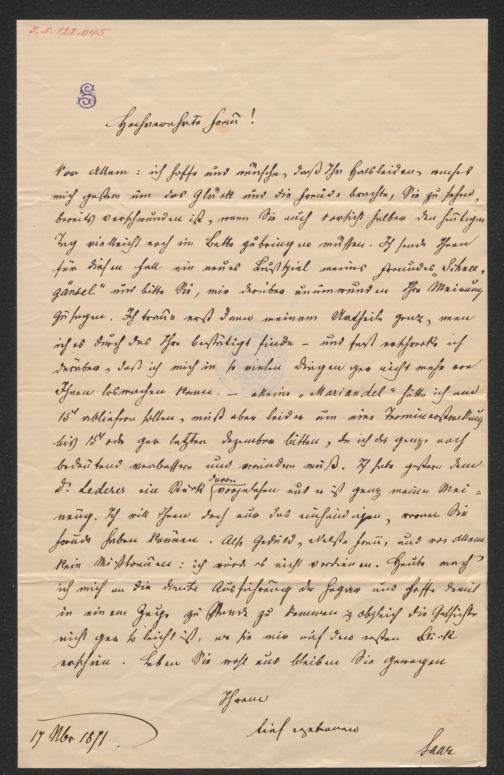 I. N. 122.045
S
Hochverehrte Frau!
Vor Allem: ich hoffe und wünsche, daß Ihr Halsleiden, welches
mich gestern um das Glück und die Freude brachte, Sie zu sehen,
bereits verschwunden ist, wenn Sie auch Vorsicht halber den heutigen
Tag vielleicht noch im Bette zubringen müssen. Ich sende Ihnen
für diesen Fall ein neues Lustspiel meines Freundes
und bitte Sie, mir darüber unumwunden Ihre Meinung
zu sagen. Ich traue erst dann meinem Urtheile ganz, wenn
ich es durch das Ihre bestätigt finde – und fast erschrecke ich
darüber, daß ich mich in so vielen Dingen gar nicht mehr von
Ihnen losmachen kann. – Meine „Mariandel" hätte ich am
15t abliefern sollen, muß aber leider um eine Terminerstreckung
bis 15t oder gar letzten Dezember bitten, da ich das ganze noch
bedeutend verbessern und verändern muß. Ich habe gestern dem
Dr. Lederer ein Stück davon vorgelesen und es ist ganz meine Mei-
nung. Ich will Ihnen doch nur das einhändigen, woran Sie
Freude haben können. Also Geduld, edelste Frau, und vor allem
kein Mißtrauen: ich würde es nicht verdienen. Heute mach
ich mich an die Ausführung der und hoffe damit
in einem Zuge zu Stande zu kommen obgleich die Geschichte
nicht gar so leicht ist, wie sie mir auf den ersten Blick
erschien. Leben Sie wohl und bleiben Sie gewogen
Ihrem
tief ergebenen
Saar
17 Nbr 1871.